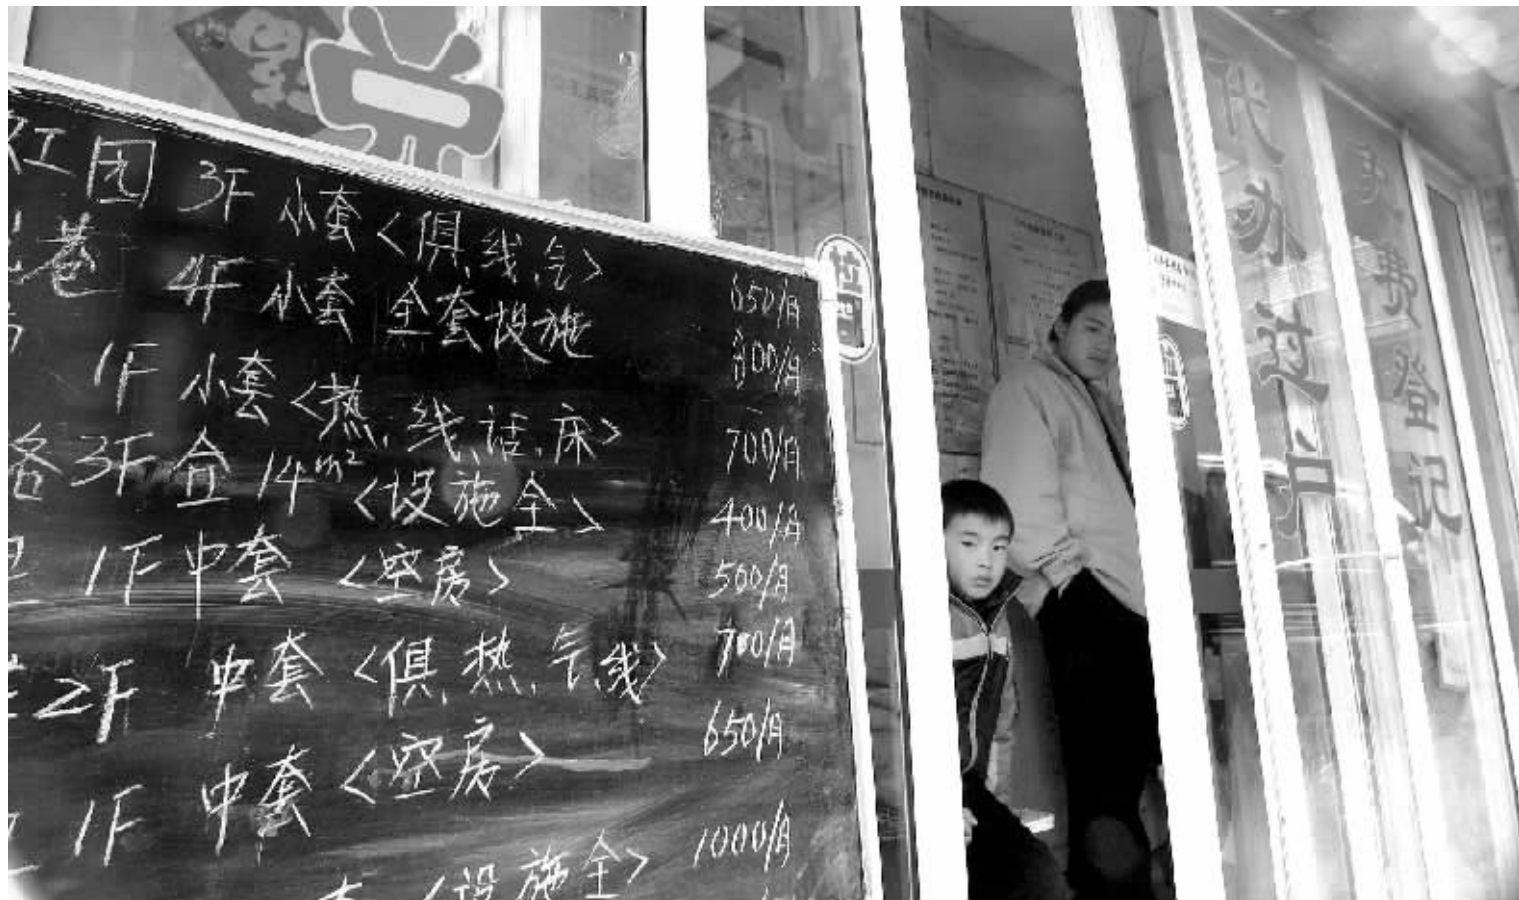 红团 3F 小套<俱,线,气> 650/月
巷 4F 小套 全套设施 800/月
1F 小套<热,线,话,床> 700/月
各 3F 合 14m² <设施全> 400/月
1F 中套 <空房> 500/月
2F 中套 <俱,热,气,线> 700/月
1F 中套 <空房> 650/月
<设施全> 1000/月
拉
代办过户
免费登记